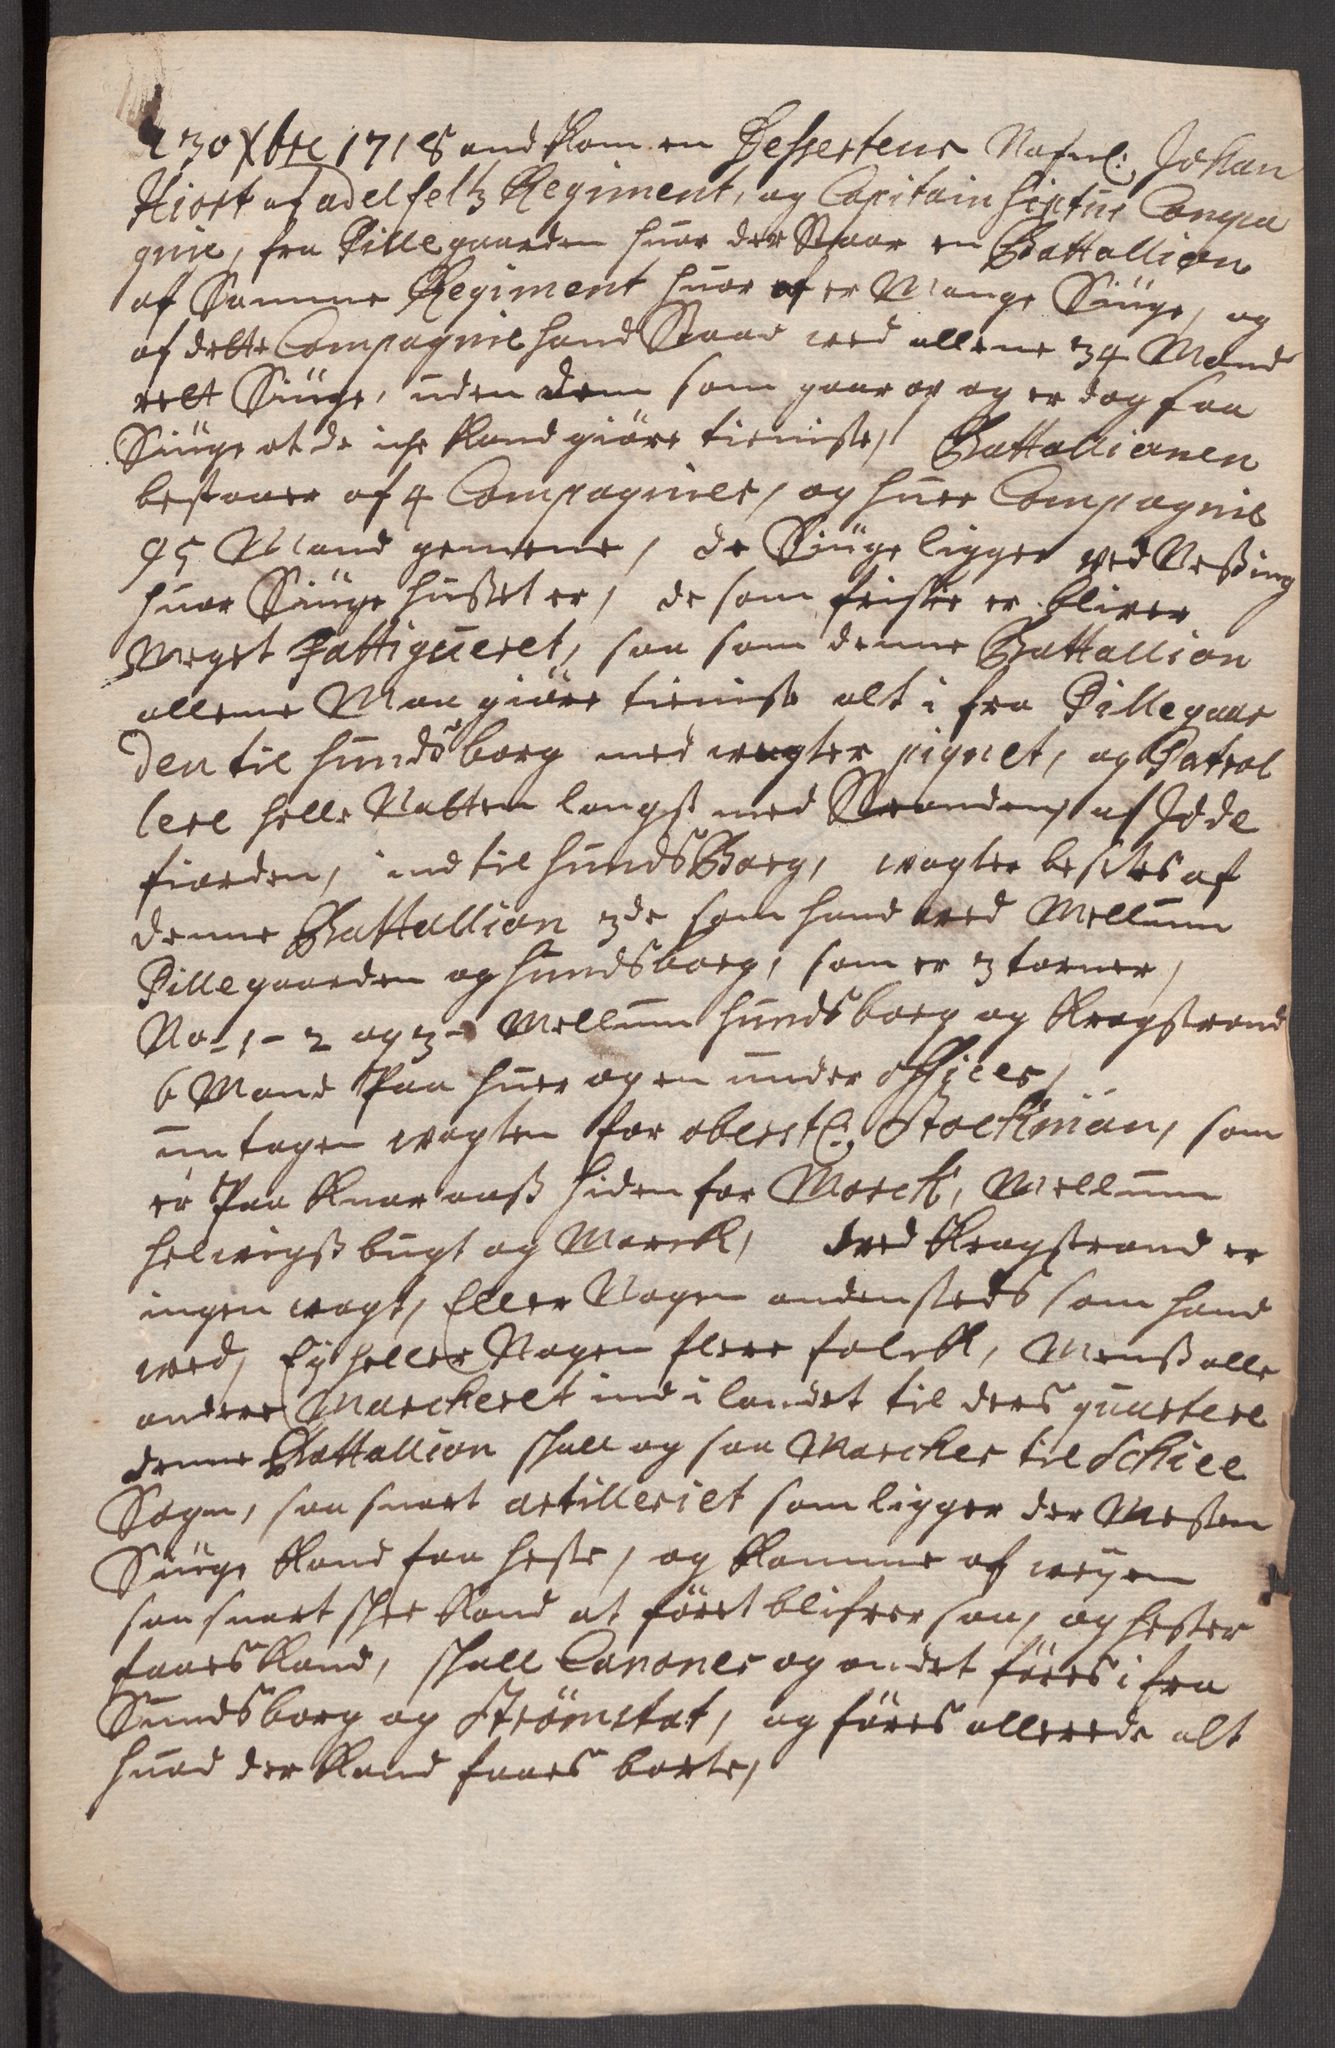 d 30 Xbre 1718 andkom en Dessesteur Nafnl: Johan
Hiort af adelfeltz Regiment, og Capitain Compa
gnie, fra Pillegaarden huor der Staar en Battallion
af Samme Regiment huor af er Mange Siuge, og
af dette Compagnie hand Staar ved allene 34 Mand
rett Siuge, uden dem som gaar op og er dog saa
Siuge at de iche kand giöre tieniste, Battallionen
bestaaer af 4 Compagnies, og huer Compagnie
95 Mand gemene, de Siuge ligger ved Nessing
huor Siuge husset er, de som friske er bliver
Meget fattigueret, saa som denne Battallion
allene Maa giöre tieniste alt i fra Pillegaar
den til hundsborg med wagter piqvet, og Patrol
lere helle Natten langst med Stranden, af Idde
fiorden, ind til hunds Borg, wagter besettes af
denne Battallion 3de som hand ved Mellum
Pillegaarden og hundsborg, som er 3 torner,
No - 1 - 2 og 3 - Mellum hundsborg og Krogstrand
6 Mand Paa huer og en under officer,
untagen wagten for oberstl: Stockman, som
er Paa Knar aass hiden for Morck, Mellum
helwigss bugt og Morck, ved Krogstrand er
ingen wagt, Eller Nogen andensteds som hand
wed, Ey heller Nogen flere folck, Menss alle
andre Marcheret ind i landet til ders quartere
denne Battallion skall og saa Marcher til Schiee
Sogn, saa snart artilleriet som ligger der Mesten
Siuge kand faa heste, og komme af weyen
saa snart skee kand at föret blifver saa, og hester
faaes kand, skall Canoner og andet föres i fra
Sundsborg og Strömstat, og föres allerede alt
huad der kand faaes borte,